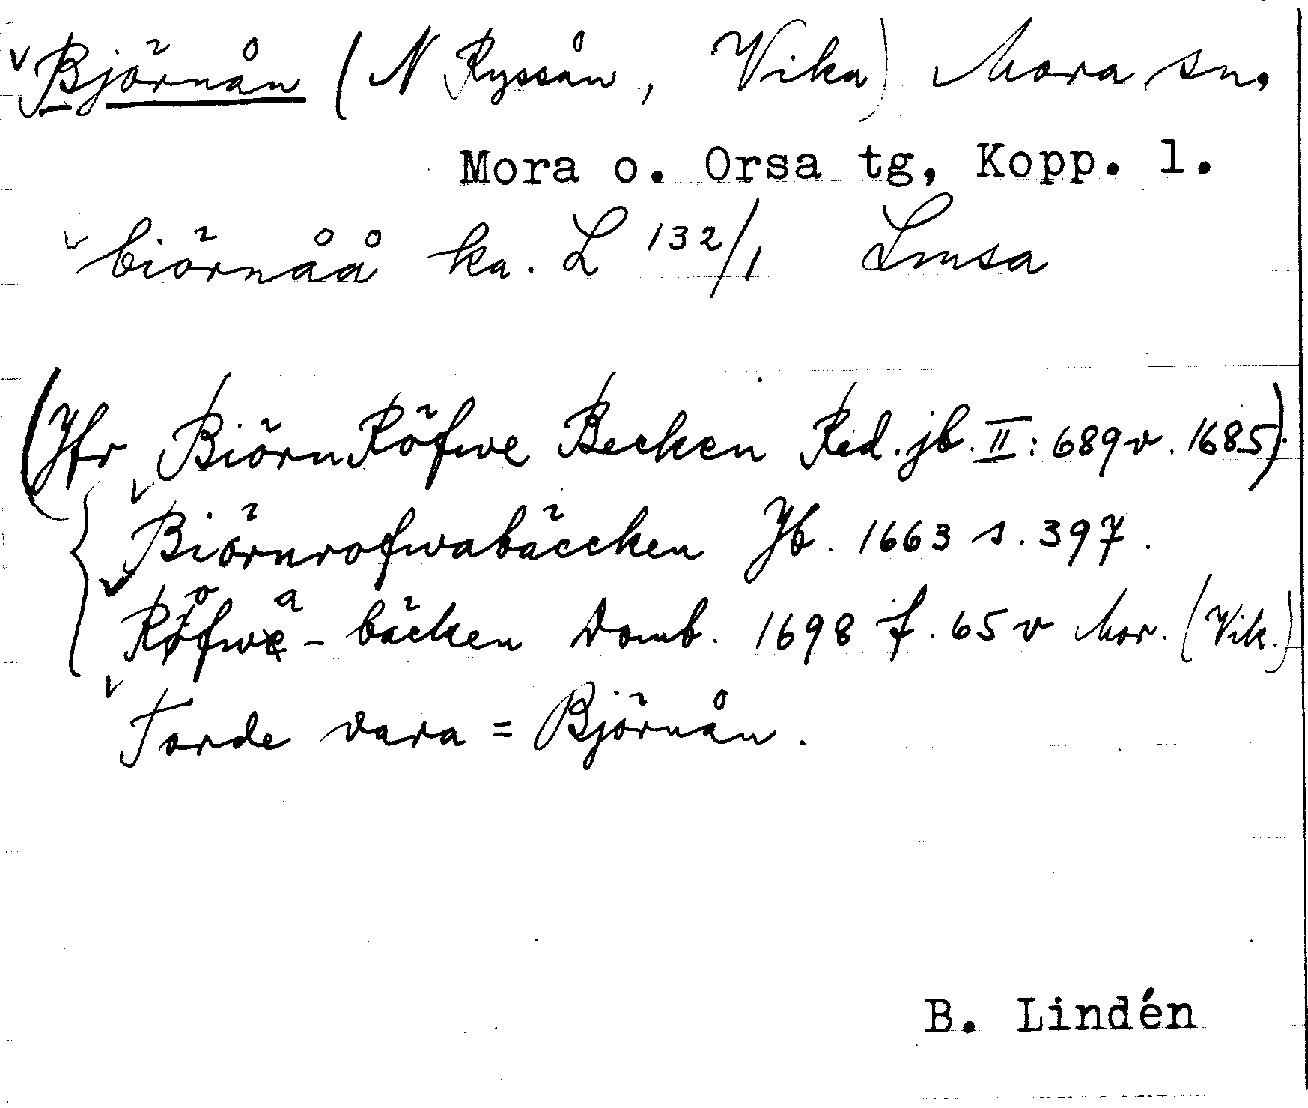 Björnån (N Ryssån, Vika) Mora sn.
Mora o. Orsa tg, Kopp. l.
biörnåå ka. L 132/1 Lmsa
(Jfr BiörnRöfwe Becken Red. jb. II: 689 v. 1685).
Biörnrofwabäccken Jb. 1663 s. 397.
Röfwe-bäcken Domb. 1698 f. 65 v Mor. (Vik.)
Torde vara = Björnån.
B. Lindén